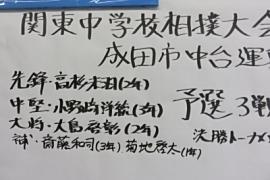 関東中学校相撲大会
成田市中台運
先鋒・高杉末田(2年)
中堅・小野崎洋統(3年)
大将・大島啓彰(2年)
補・斎藤和司(3年) 菊地啓太(1年)
予選3戦
決勝トーナメ